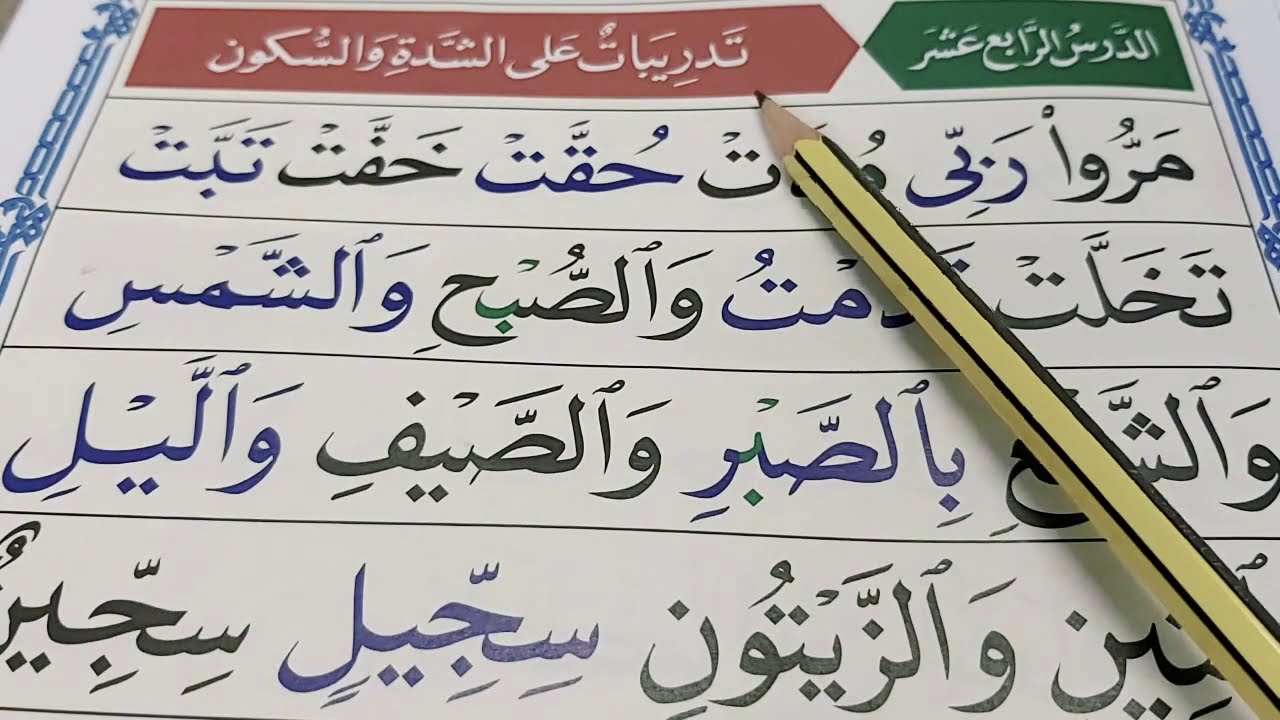 الدَّرسُ الرَّابع عَشَر
تَدرِيبَاتٌ عَلى الشَّدَّةِ وَالسُّكون
مَرُّواْ رَبِّي حُقَّتْ خَفَّتْ تَبَّتْ
تَخَلَّتْ وَٱلصُّبْحِ وَٱلشَّمْسِ
بِٱلصَّبْرِ وَٱلصَّيْفِ وَٱلَّيْلِ
وَٱلزَّيْتُونِ سِجِّيلٍ